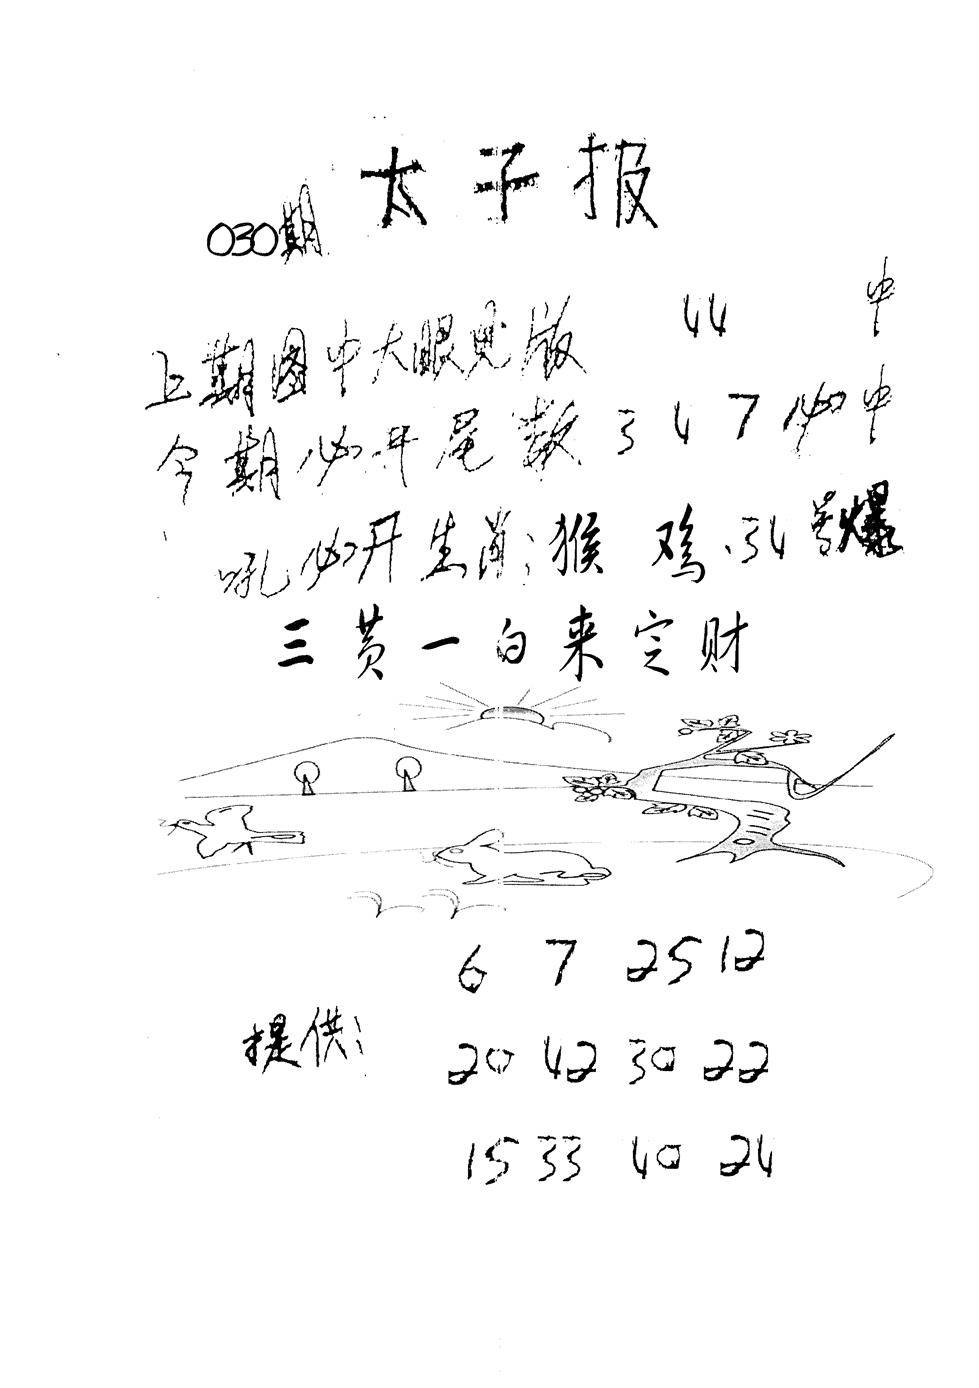 太子报
030期
上期图中大眼见版 44 中
今期必开尾数 3 4 7 必中
吼必开生肖:猴 鸡.34 爆
三黄一白来定财
6 7 25 12
提供:
20 42 30 22
15 33 40 24